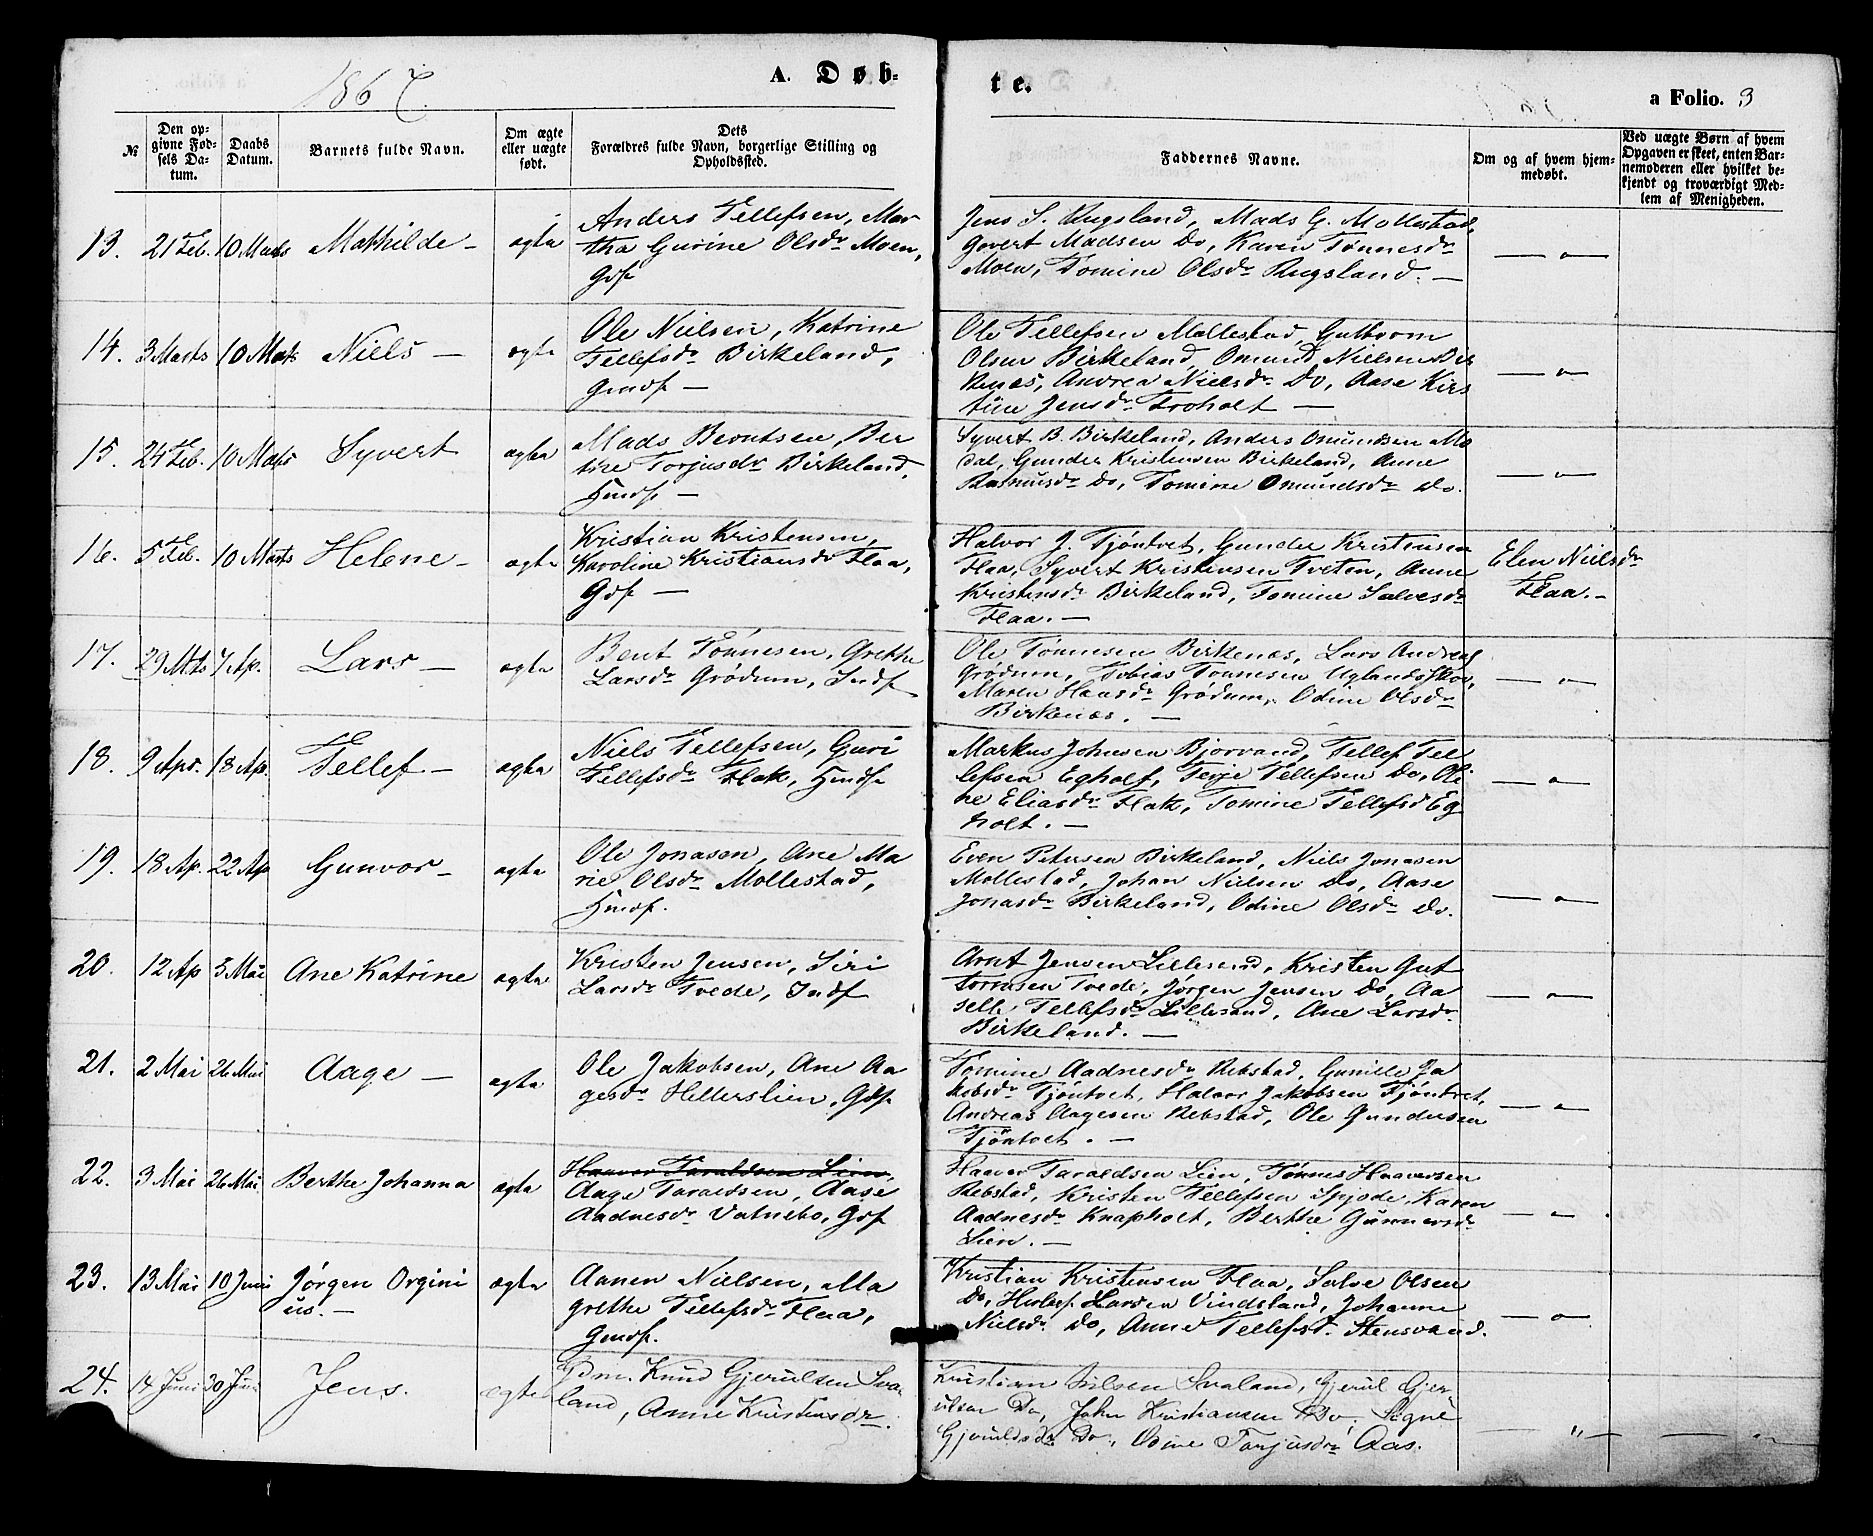 1867.
A. Døb-
te.
a Folio. 3
№
Den op-
givne Fød-
sels Da-
tum.
Daabs
Datum.
Barnets fulde Navn.
Om ægte
eller uægte
født.
Dets
Forældres fulde Navn, borgerlige Stilling og
Opholdssted.
Faddernes Navne.
Om og af hvem hjem-
medøbt.
Ved uægte Børn af hvem
Opgaven er skeet, enten Bar-
nemoderen eller hvilket be-
kjendt og troværdigt Med-
lem af Menigheden.
13. 21 Feb. 10 Marts Mathilde – ægte
Anders Tellefsen, Mar
tha Gurine Olsdr Moen,
Gdf
Jens S. Rugsland, Mads G. Mollestad,
Govert Madsen Do, Karen Tønnesdr
Moen, Tomine Olsdr Rugsland. –
— „ —
14. 3 Marts 10 Marts Niels – ægte
Ole Nielsen, Katrine
Tellefsdr Birkeland,
Gmdf –
Ole Tellefsen Mollestad, Guttorm
Olsen Birkeland, Omund Nielsen Bir
kenes, Andrea Nielsdr Do, Aase Kirs
tine Jensdr Froholt –
— „ —
15. 24 Feb. 10 Marts Syvert ægte
Mads Berntsen, Ber
the Torjusdr Birkeland,
Hmdf –
Syvert B. Birkeland, Anders Omundsen Mo
dal, Gunder Kristensen Birkeland, Anne
Rasmusdr Do, Tomine Omundsdr Do.
— „ —
16. 5 Feb. 10 Marts Helene – ægte
Kristian Kristensen,
Karoline Kristiansdr Flaa,
Gdf –
Halvor J. Tjøntvet, Gunder Kristensen
Flaa, Syvert Kristensen Tveten, Anne
Kristensdr Birkeland, Tomine Salvesdr
Flaa. –
Elen Nielsdr
Flaa. –
17. 29 Mts 7 Ap. Lars – ægte
Bent Tønnesen, Grethe
Larsdr Grødum, Indf
Ole Tønnesen Birkenæs, Lars Andreas
Grødum, Tobias Tønnesen Uglandsskov,
Maren Hansdr Grødum, Odine Olsdr
Birkenæs. –
— „ —
18. 9 Apr. 18 Ap. Tellef – ægte
Niels Tellefsen, Guri
Tellefsdr Flak, Hmdf
Markus Johnsen Bjorvand, Tellef Tel
lefsen Egholt, Terje Tellefsen Do, Oli
ne Eliasdr Flak, Tomine Tellefsd Eg
holt. –
— „ —
19. 18 Ap. 22 Ap Gunvor – ægte
Ole Jonasen, Ane Ma
rie Olsdr Mollestad,
Hmdf.
Even Petersen Birkeland, Niels Jonasen
Mollestad, Johan Nielsen Do, Aase
Jonasdr Birkeland, Odine Olsdr Do.
— „ —
20. 12 Ap 3 Mai Ane Katrine ægte
Kristen Jensen, Siri
Larsdr Tvede, Indf
Arnt Jensen Lillesand, Kristen Gut
tormsen Tvede, Jørgen Jensen Do, Aa
selle Tellefsdr Lillesand, Ane Larsdr
Birkeland. –
— „ —
21. 2 Mai 26 Mai Aage – ægte
Ole Jakobsen, Ane Aa
gesdr Hellerslien, Gdf.
Tomine Aadnesdr Rebstad, Gunille Ja
kobsdr Tjøntvet, Halvor Jakobsen Tjøntvet,
Andreas Aagesen Rebstad, Ole Gundersen
Tjøntvet. –
— „ —
22. 3 Mai 26 Mai Berthe Johanna ægte
Haaver Taraldsen Lien,
Aage Taraldsen, Aase
Aadnesdr Vatnebo, Gdf
Haaver Taraldsen Lien, Tønnes Haaversen
Rebstad, Kristen Tellefsen Spjode, Karen
Aadnesdr Knapholt, Berthe Gunnersdr
Lien. –
— „ —
23. 13 Mai 10 Juni Jørgen Orgini
us. –
ægte
Aanen Nielsen, Ma
grethe Tellefsdr Flaa,
Gmdf.
Kristian Kristensen Flaa, Salve Olsen
Do, Larsen Vindsland, Johanne
Nielsdr Do, Anne Tellefsd. Stensvand.
— „ —
24. 14 Juni 30 Juni Jens. ægte
Gdm. Knud Gjerulsen Sva
land, Anne Kristensdr.
Kristian Nilsen Svaland, Gjerul Gjer
ulsen Do, John Kristiansen Do, Signe
Gjeruldsdr Do, Odine Torjusdr Aas.
— „ — — „ —